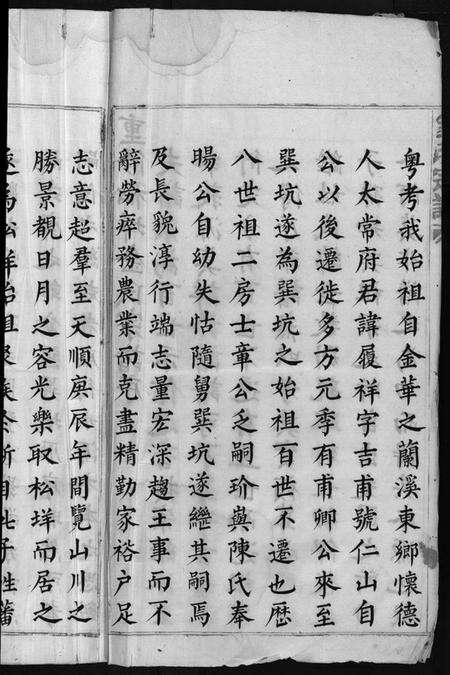 粤考我始祖自金華之蘭溪東鄉懷德
人太常府君諱履祥字吉甫號仁山自
公以後遷徙多方元季有甫卿公來至
巽坑遂為巽坑之始祖百世不遷也歷
八世祖二房士章公乏嗣玠與陳氏奉
暘公自幼失怙隨舅巽坑遂繼其嗣焉
及長貌淳行端志量宏深趨王事而不
辭勞瘁務農業而克盡精勤家裕戶足
志意超羣至天順庚辰年間覽山川之
勝景覩日月之容光樂取松垟而居之
遂為松垟始祖